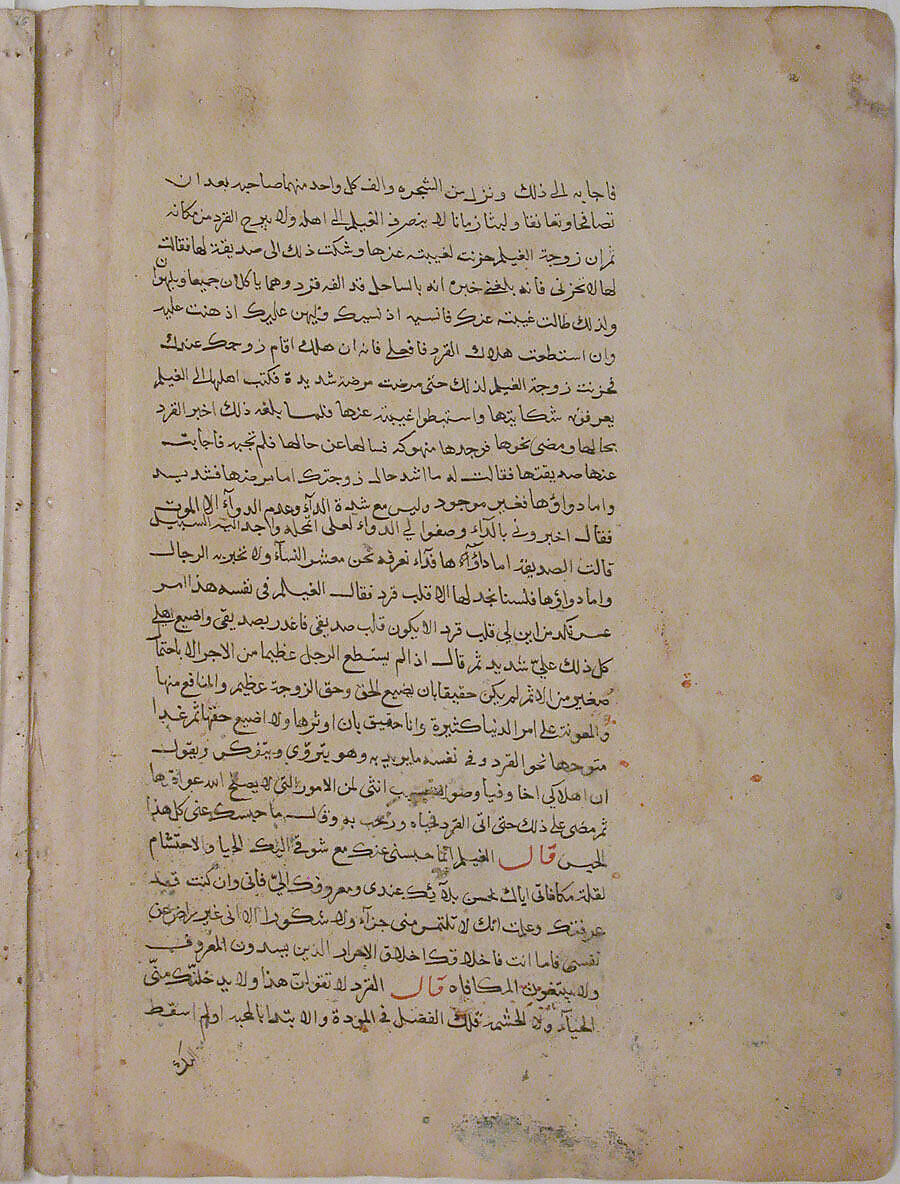 فاجابه الى ذلك ونزل من الشجره والف كل واحد منهما صاحبه بعد ان
تصافحا وتعانقا ولبثا زمانا لا ينصرف الغيلم الى اهله ولا يبرح القرد من مكانه
ثم ان زوجة الغيلم حزنت لغيبته عنها وشكت ذلك الى صديقة لها فقالت
لها لا تحزنى فانه بلغنى خبره انه بالساحل قد الفه قرد وهما ياكلان جميعا ويلهوان
ولذلك طالت غيبته عنك فانسيه اذ نسيك وليهن عليك اذ هنت عليه
وان استطعت هلاك القرد فافعلى فانه ان هلك اقام زوجك عندك
فحزنت زوجة الغيلم لذلك حتى مرضت مرضة شديدة فكتب اهلها الى الغيلم
يعرفونه شكايتها واستبطوا غيبته عنها فلما بلغه ذلك اخبر القرد
بحالها ومضى نحوها فوجدها منهوكة فسالها عن حالها فلم تجبه فاجابت
عنها صديقتها فقالت له ما اشد حال زوجتك اما مرضها فشديد
واما دواؤها فغير موجود وليس مع شدة الداء وعدم الدوآء الا الموت
فقال اخبرونى بالدآء وصفوا لى الدواء لعلى اجد اليه السبيل
قالت الصديقة اما داؤها فدآء نعرفه نحن معشر النسآء ولا نخبر به الرجال
واما دواؤها فلسنا نجد لها الا قلب قرد فقال الغيلم فى نفسه هذا امر
عسر من اين لى قلب قرد الا يكون قلب صديقى فاغدر بصديقى واضيع اهلى
كل ذلك علىّ شديد ثم قال اذ الم يستطع الرجل عظيما من الاجر الا باحتما
صغير من الاثم لم يكن حقيقا بان يضيع الحق وحق الزوجة عظيم والمنافع منها
والمعونة على امر الدنيا كثيرة وانا حقيق بان اوثرها ولا اضيع حقها ثم غدا
متوجها نحو القرد وفى نفسه ما يريد به وهو يتروّى ويتفكر ويقول
ان اهلاكى اخا وفيا انثى لمن الامور التى لا يصلح الله عواقبها
ثم مضى على ذلك حتى اتى القرد فحياه ورحب به وقال ما حبسك عنى كل هذا
الحين قال الغيلم انما حبسنى عنك مع شوقى اليك الحيا والاحتشام
لقلة مكافاتى اياك بحسن بلآيك عندى ومعروفك الىّ فانى وان كنت قد
عرفتك وعلمت انك لا تلتمس منى جزآء ولا شكورا الا انى غير براض عن
نفسى فاما انت فاخلاقك اخلاق الاحرار الذين يسدون المعروف
ولا يبتغون المكافاه قال القرد لا تقولن هذا ولا يدخلنّك منّى
الحيآء ولا الحشمه فلك الفضل فى المودة والابتدا بالمحبه اولم اسقط
اليك